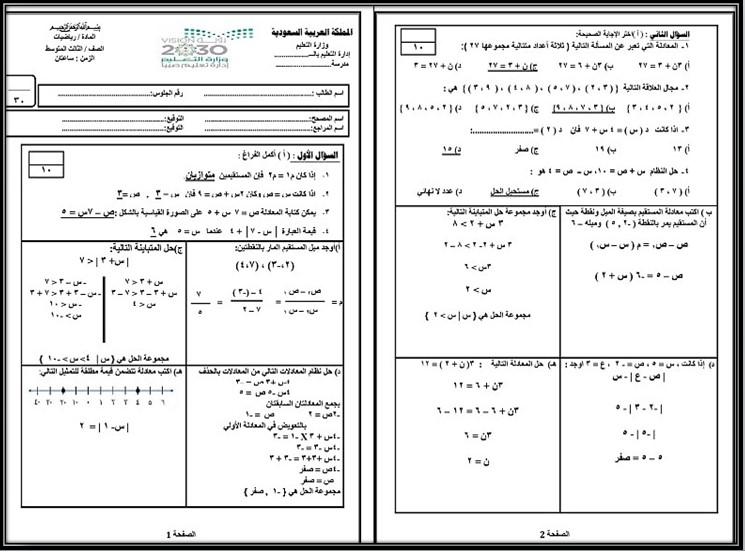 بسم الله الرحمن الرحيم
المملكة العربية السعودية
وزارة التعليم
إدارة التعليم بالـ...........
مدرسة...........
VISION رؤية
2030
وزارة التعليم
إدارة تعليم صبيا
المادة / رياضيات
الصف / الثالث المتوسط
الزمن : ساعتان
اسم الطالب : ........................ رقم الجلوس:........................
٣٠
اسم المصحح: التوقيع:
اسم المراجع: التوقيع:
السؤال الأول : ( أ ) أكمل الفراغ :
١٠
١. إذا كان م١ = م٢ فإن المستقيمين متوازيان.
٢. اذا كانت س = ص وكان ٢س + ص = ٩ فإن س = ٣ , ص = ٣
٣. يمكن كتابة المعادلة ص = ٧ س + ٥ على الصورة القياسية بالشكل : ص – ٧س = ٥
٤. قيمة العبارة | س - ٧ | + ٤ عندما س = ٥ هي ٦
أ)أوجد ميل المستقيم المار بالنقطتين:
(٢،-٣) ، (٧،٤)
م = ص٢ – ص١ / س٢ – س١ = ٤ – (-٣) / ٧ – ٢ = ٧ / ٥
ج)حل المتباينة التالية:
| س + ٣ | < ٧
س + ٣ < ٧
س + ٣ – ٣ < ٧ – ٣
س < ٤
-س – ٣ < ٧
-س – ٣ + ٣ < ٧ + ٣
-س < ١٠
س > -١٠
مجموعة الحل هي { س | -١٠ < س < ٤ }
د) حل نظام المعادلات التالي من المعادلات بالحذف
-٤س + ٣ص = -٣
٤س – ٥ص = ٥
بجمع المعادلتان السابقتان
-٢ص = ٢ ص = -١
بالتعويض في المعادلة الأولي
-٤س + ٣ X -١ = -٣
-٤س – ٣ = -٣
-٤س -٣+٣ = -٣ + ٣
-٤ص = صفر
ص = صفر
مجموعة الحل هي { -١ ، صفر }
هـ) اكتب معادلة تتضمن قيمة مطلقة للتمثيل التالي:
-٤ -٣ -٢ -١ ٠ ١ ٢ ٣ ٤ ٥ ٦
| س- ١ | = ٢
الصفحة 1
السؤال الثاني : ( أ ) اختر الإجابة الصحيحة:
١٠
١- المعادلة التي تعبر عن المسألة التالية ( ثلاثة أعداد متتالية مجموعها ٢٧ ) :
أ) ٣ن + ٣ = ٢٧ ب) ٣ن + ٦ = ٢٧ ج) ن + ٣ = ٢٧ د) ن + ٢٧ = ٣
٢- مجال العلاقة التالية { ( ٢،٣ ) ، ( ٥،٧ ) ، ( ٤،٨ ) ، ( ٣،٩ ) } هي :
أ) { ٢ ، ٥ ، ٤ ، ٣ } ب) { ٣ ، ٧ ، ٨ ، ٩ } ج) { ٣ ، ٢ ، ٧ ، ٥ } د) { ٢ ، ٥ ، ٨ ، ٩ }
٣- اذا كانت د ( س ) = ٤س + ٧ فإن د ( ٢ ) =........................:
أ) ١٣ ب) ١٩ ج) صفر د) ١٥
٤- حل النظام س + ص = ١٠، س – ص = ٤ هو :
أ) ( ٧ ، ٣ ) ب) ( ٣ ، ٧ ) ج) مستحيل الحل د) عدد لا نهائي
ب ) اكتب معادلة المستقيم بصيغة الميل ونقطة حيث أن المستقيم يمر بالنقطة ( -٢ ، ٥ ) وميله -٦
ص – ص١ = م ( س – س١ )
ص – ٥ = -٦ ( س + ٢ )
ج) أوجد مجموعة حل المتباينة التالية:
٣ س + ٢ > ٨
٣ س + ٢- ٢ > ٨ – ٢
٣س > ٦
س > ٢
مجموعة الحل هي { س | س > ٢ }
د) إذا كانت ، س = ٥ ، ص = -٢ ، ع = ٣ اوجد :
| ص - ع | - س
| -٢ - ٣ | - ٥
| -٥ | - ٥
٥ – ٥ = صفر
هـ) حل المعادلة التالية : ٣( ن + ٢ ) = ١٢
٣ن + ٦ = ١٢
٣ن + ٦ – ٦ = ١٢ – ٦
٣ن = ٦
ن = ٢
الصفحة 2